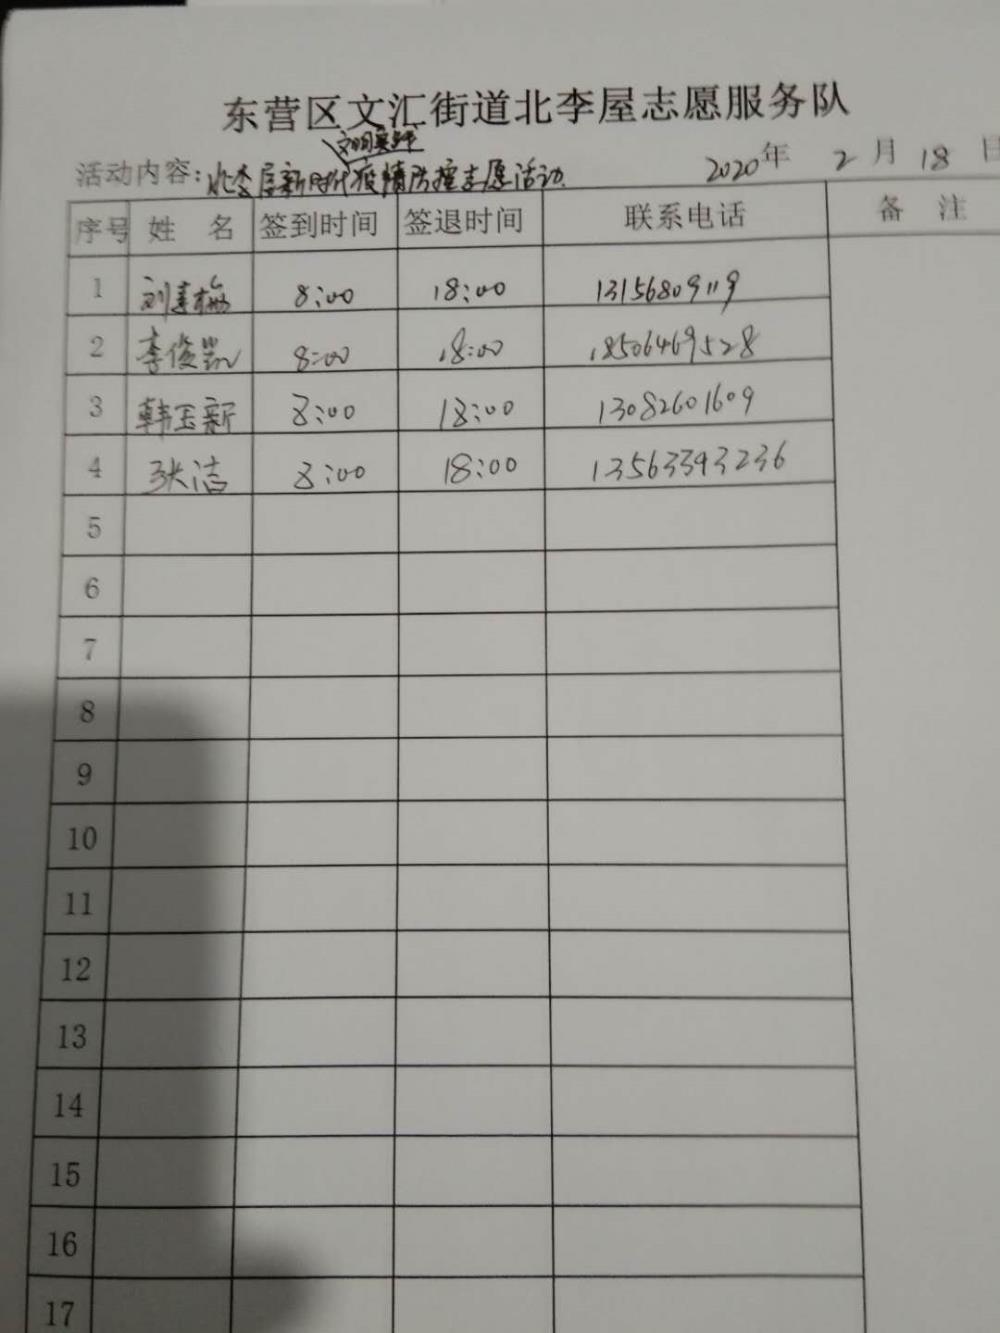 东营区文汇街道北李屋志愿服务队
文明实践
活动内容：北李屋新时代疫情防控志愿活动. 2020年 2月18日
序号 姓 名 签到时间 签退时间 联系电话 备 注
1 刘春梅 8:00 18:00 13156809119
2 李俊凯 8:00 18:00 18506469528
3 韩玉新 8:00 18:00 13082601609
4 张洁 8:00 18:00 13563393236
5
6
7
8
9
10
11
12
13
14
15
16
17